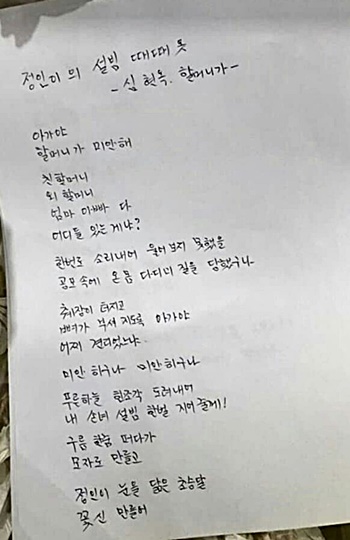 정인이의 설빔 때때옷
- 심현옥. 할머니가 -
아가야
할머니가 미안해
친할머니
외할머니
엄마 아빠 다
어디들 있는게냐?
한번도 소리내어 울어보지 못했을
공포속에 온몸 다디미 질을 당했구나
췌장이 터지고
뼈가 부서지도록 아가야
어찌 견디었느냐.
미안하구나 미안하구나
푸른하늘 한조각 도려내어
내 손녀 설빔 한벌 지어줄게!
구름 한줌 떠다가
모자로 만들고
정인이 눈을 닮은 초승달
꽃신 만들어